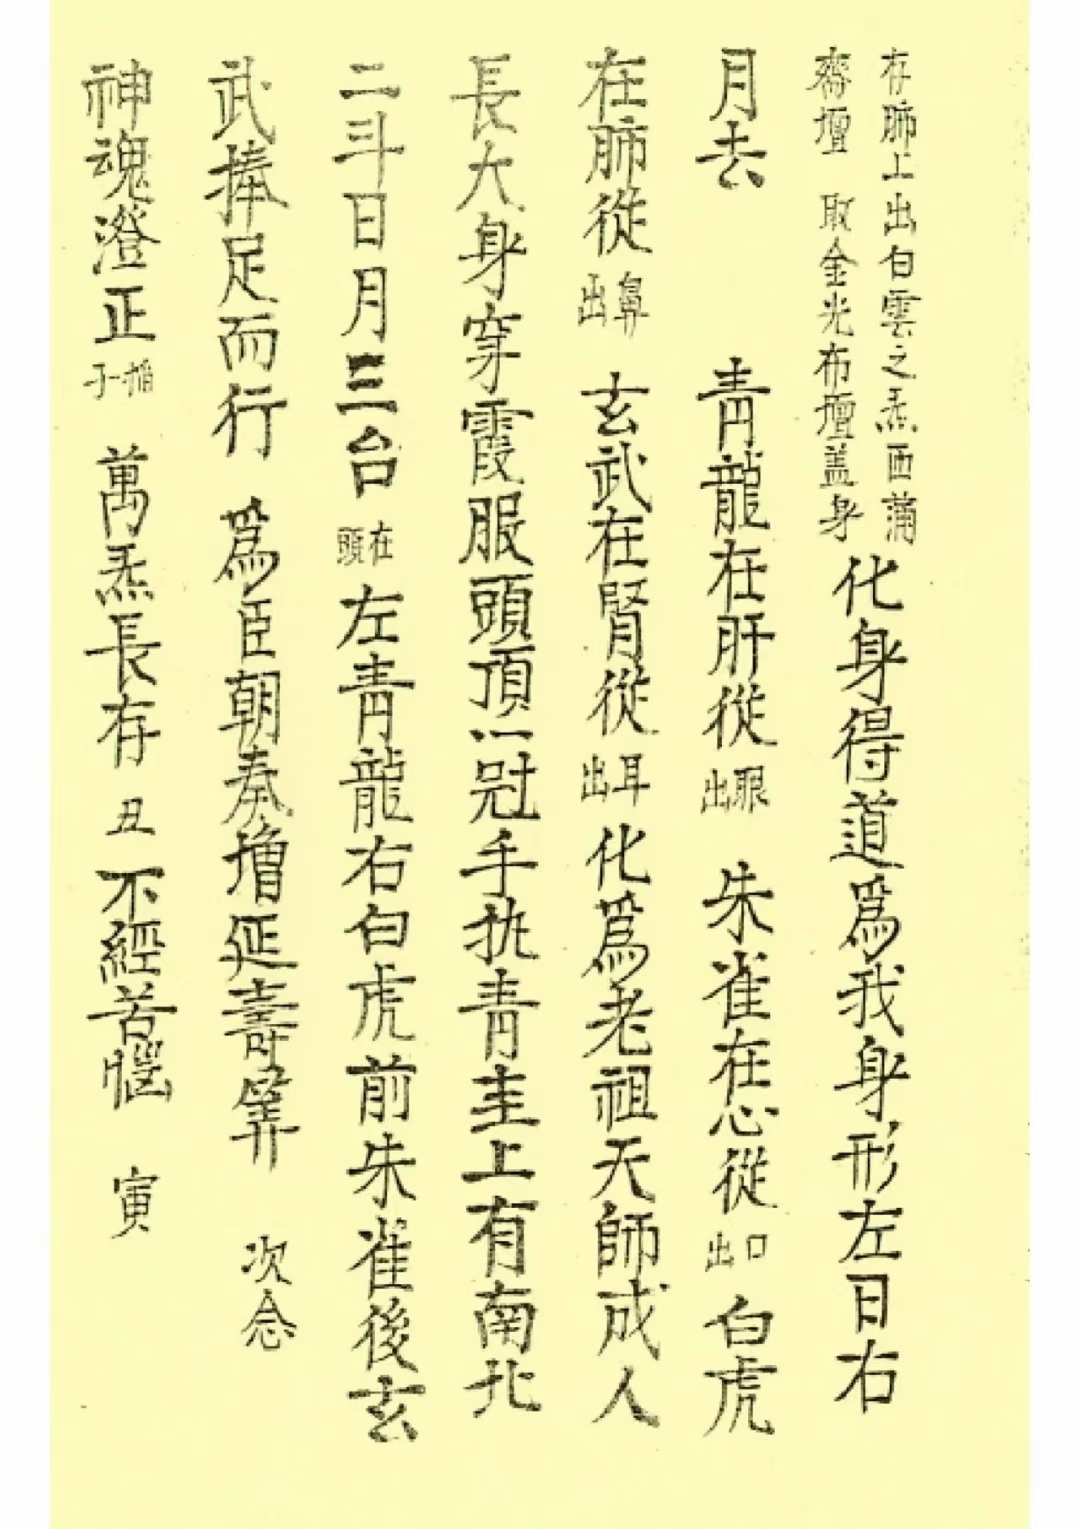 存肺上出白雲之炁洒蒲
齋壇 取金光布壇盖身
化身得道爲我身形左日右
月去 青龍在肝從眼出 朱雀在心從口出 白虎
在肺從鼻出 玄武在腎從耳出 化爲老祖天師成人
長大身穿霞服頭頂冠手执青圭上有南北
二斗日月三台在頭左青龍右白虎前朱雀後玄
武捧足而行 爲臣朝奏增延壽筭 次念
神魂澄正 子 萬炁長存 丑 不經苦惱 寅